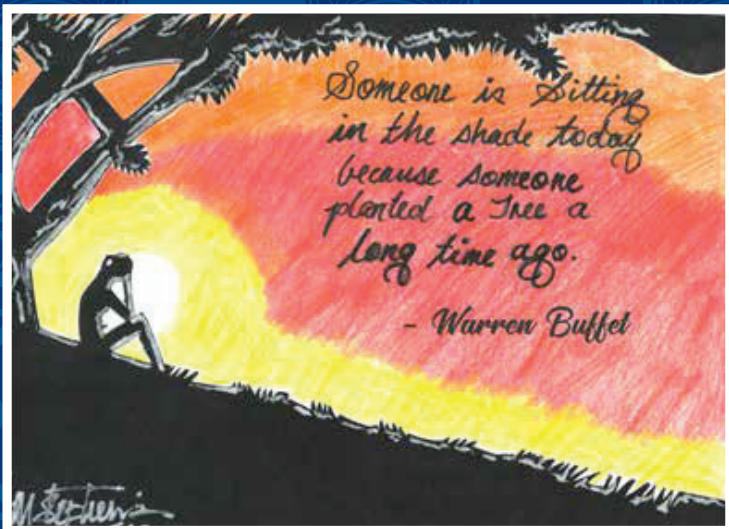 Someone is Sitting
in the shade today
because someone
planted a Tree a
long time ago.
- Warren Buffet